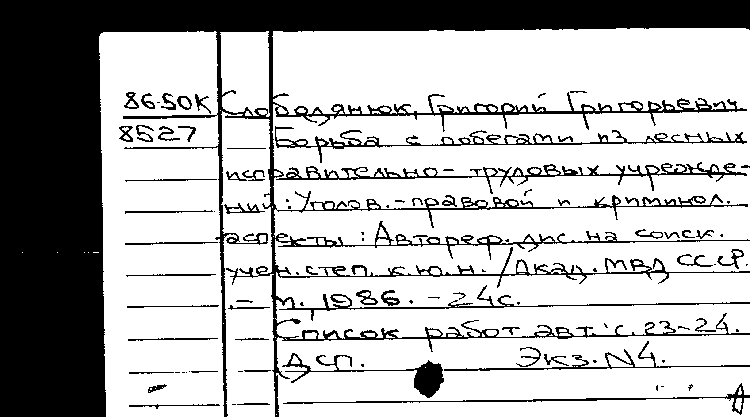 86-50К Слободянюк, Григорий Григорьевич
8527 Борьба с побегами из лесных
исправительно-трудовых учрежде-
ний: Уголов.-правовой и криминол.
аспекты: Автореф. дис. на соиск.
учен. степ. к.ю.н. / Акад. МВД СССР.
.- М., 1986. - 24с.
Список работ авт.: с. 23-24.
ДСП. Экз. N4.